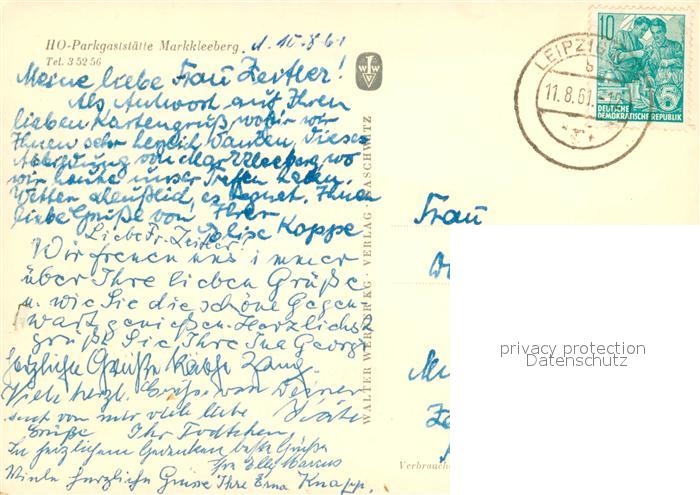 HO-Parkgaststätte Markkleeberg, d. 10.8.61
Tel. 3 52 56
Meine liebe Frau Zeitler!
Als Antwort auf Ihren
lieben Kartengruß wofür wir
Ihnen sehr herzlich danken, diese
Abbildung von Markkleeberg wo
wir heute unser Treffen haben.
Wetter scheußlich, es regnet. Ihnen
liebe Grüße von Ihrer
Elise Koppe
Liebe Fr. Zeitler!
Wir freuen uns immer
über Ihre lieben Grüße
u. wie Sie die schöne Gegen-
wart genießen. Herzlichst
grüßt Sie Ihre Ina George
Herzliche Grüße Käthe Zang.
Viele herzl. Grüße von Deiner
Käte
auch von mir viele liebe
Grüße Ihr Todtchen
In herzlichem Gedenken beste Grüße
Ihre Elly Marcus
Viele herzliche Grüße Ihre Erna Knapp.
WALTER WERNER KG · VERLAG
LEIPZIG
11.8.61
10
DEUTSCHE
DEMOKRATISCHE REPUBLIK
Frau
privacy protection
Datenschutz